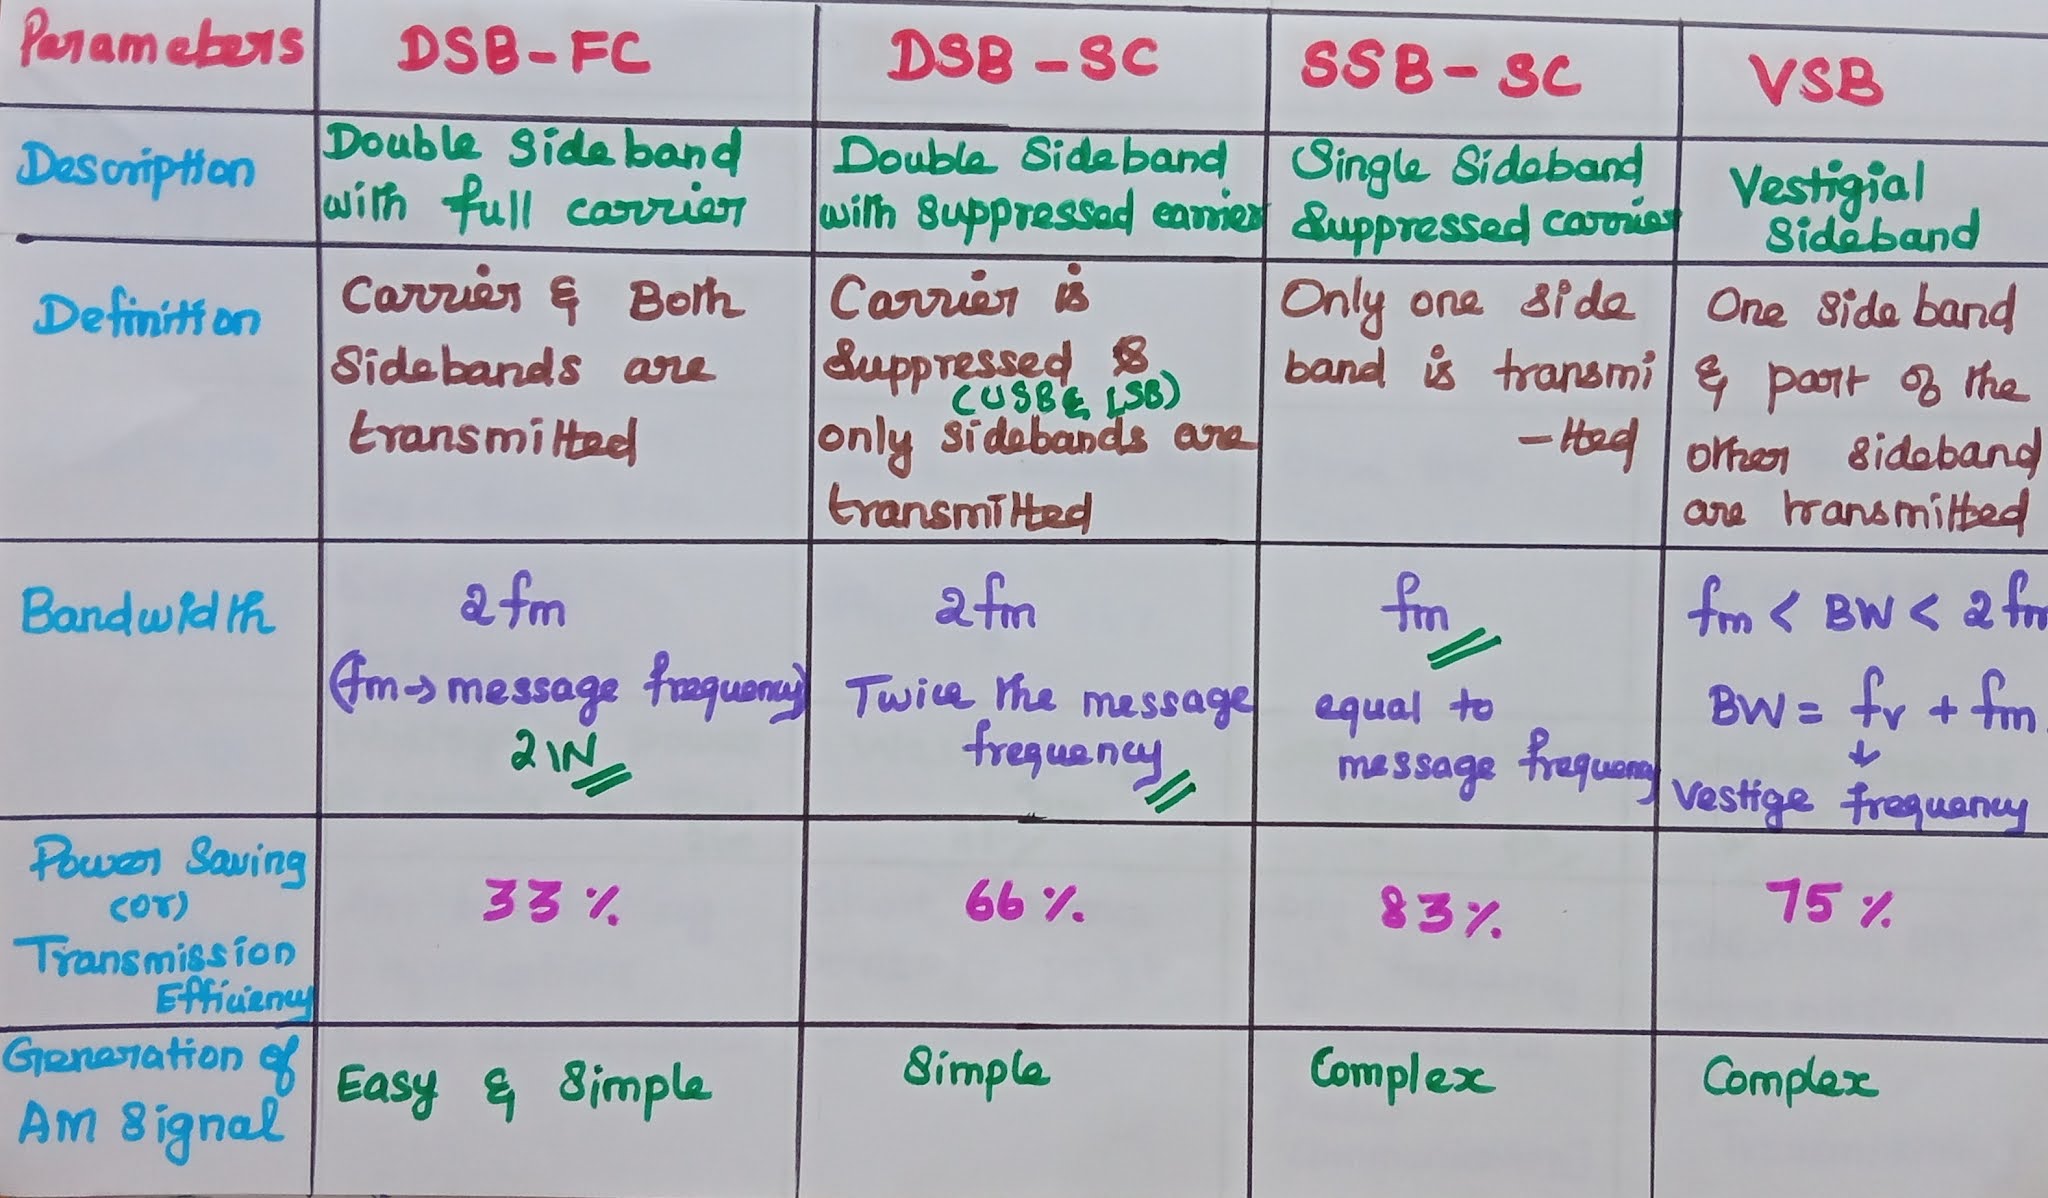 Parameters
DSB-FC
DSB-SC
SSB-SC
VSB
Description
Double Sideband
with full carrier
Double Sideband
with suppressed carrier
Single Sideband
Suppressed carrier
Vestigial
Sideband
Definition
Carrier & Both
Sidebands are
transmitted
Carrier is
Suppressed &
(USB & LSB)
only sidebands are
transmitted
Only one side
band is transmi
-tted
One side band
& part of the
other sideband
are transmitted
Bandwidth
2fm
(fm→ message frequency)
2W
2fm
Twice the message
frequency
fm
equal to
message frequency
fm < BW < 2fm
BW = fv + fm.
↓
Vestige frequency
Power Saving
(or)
Transmission
Efficiency
33%
66%
83%
75%
Generation of
AM Signal
Easy & Simple
Simple
Complex
Complex